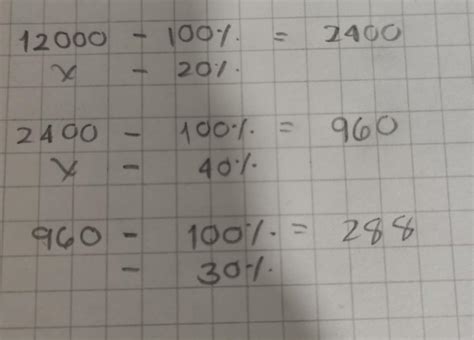 12000 - 100% = 2400
x - 20%
2400 - 100% = 960
x - 40%
960 - 100% = 288
- 30%